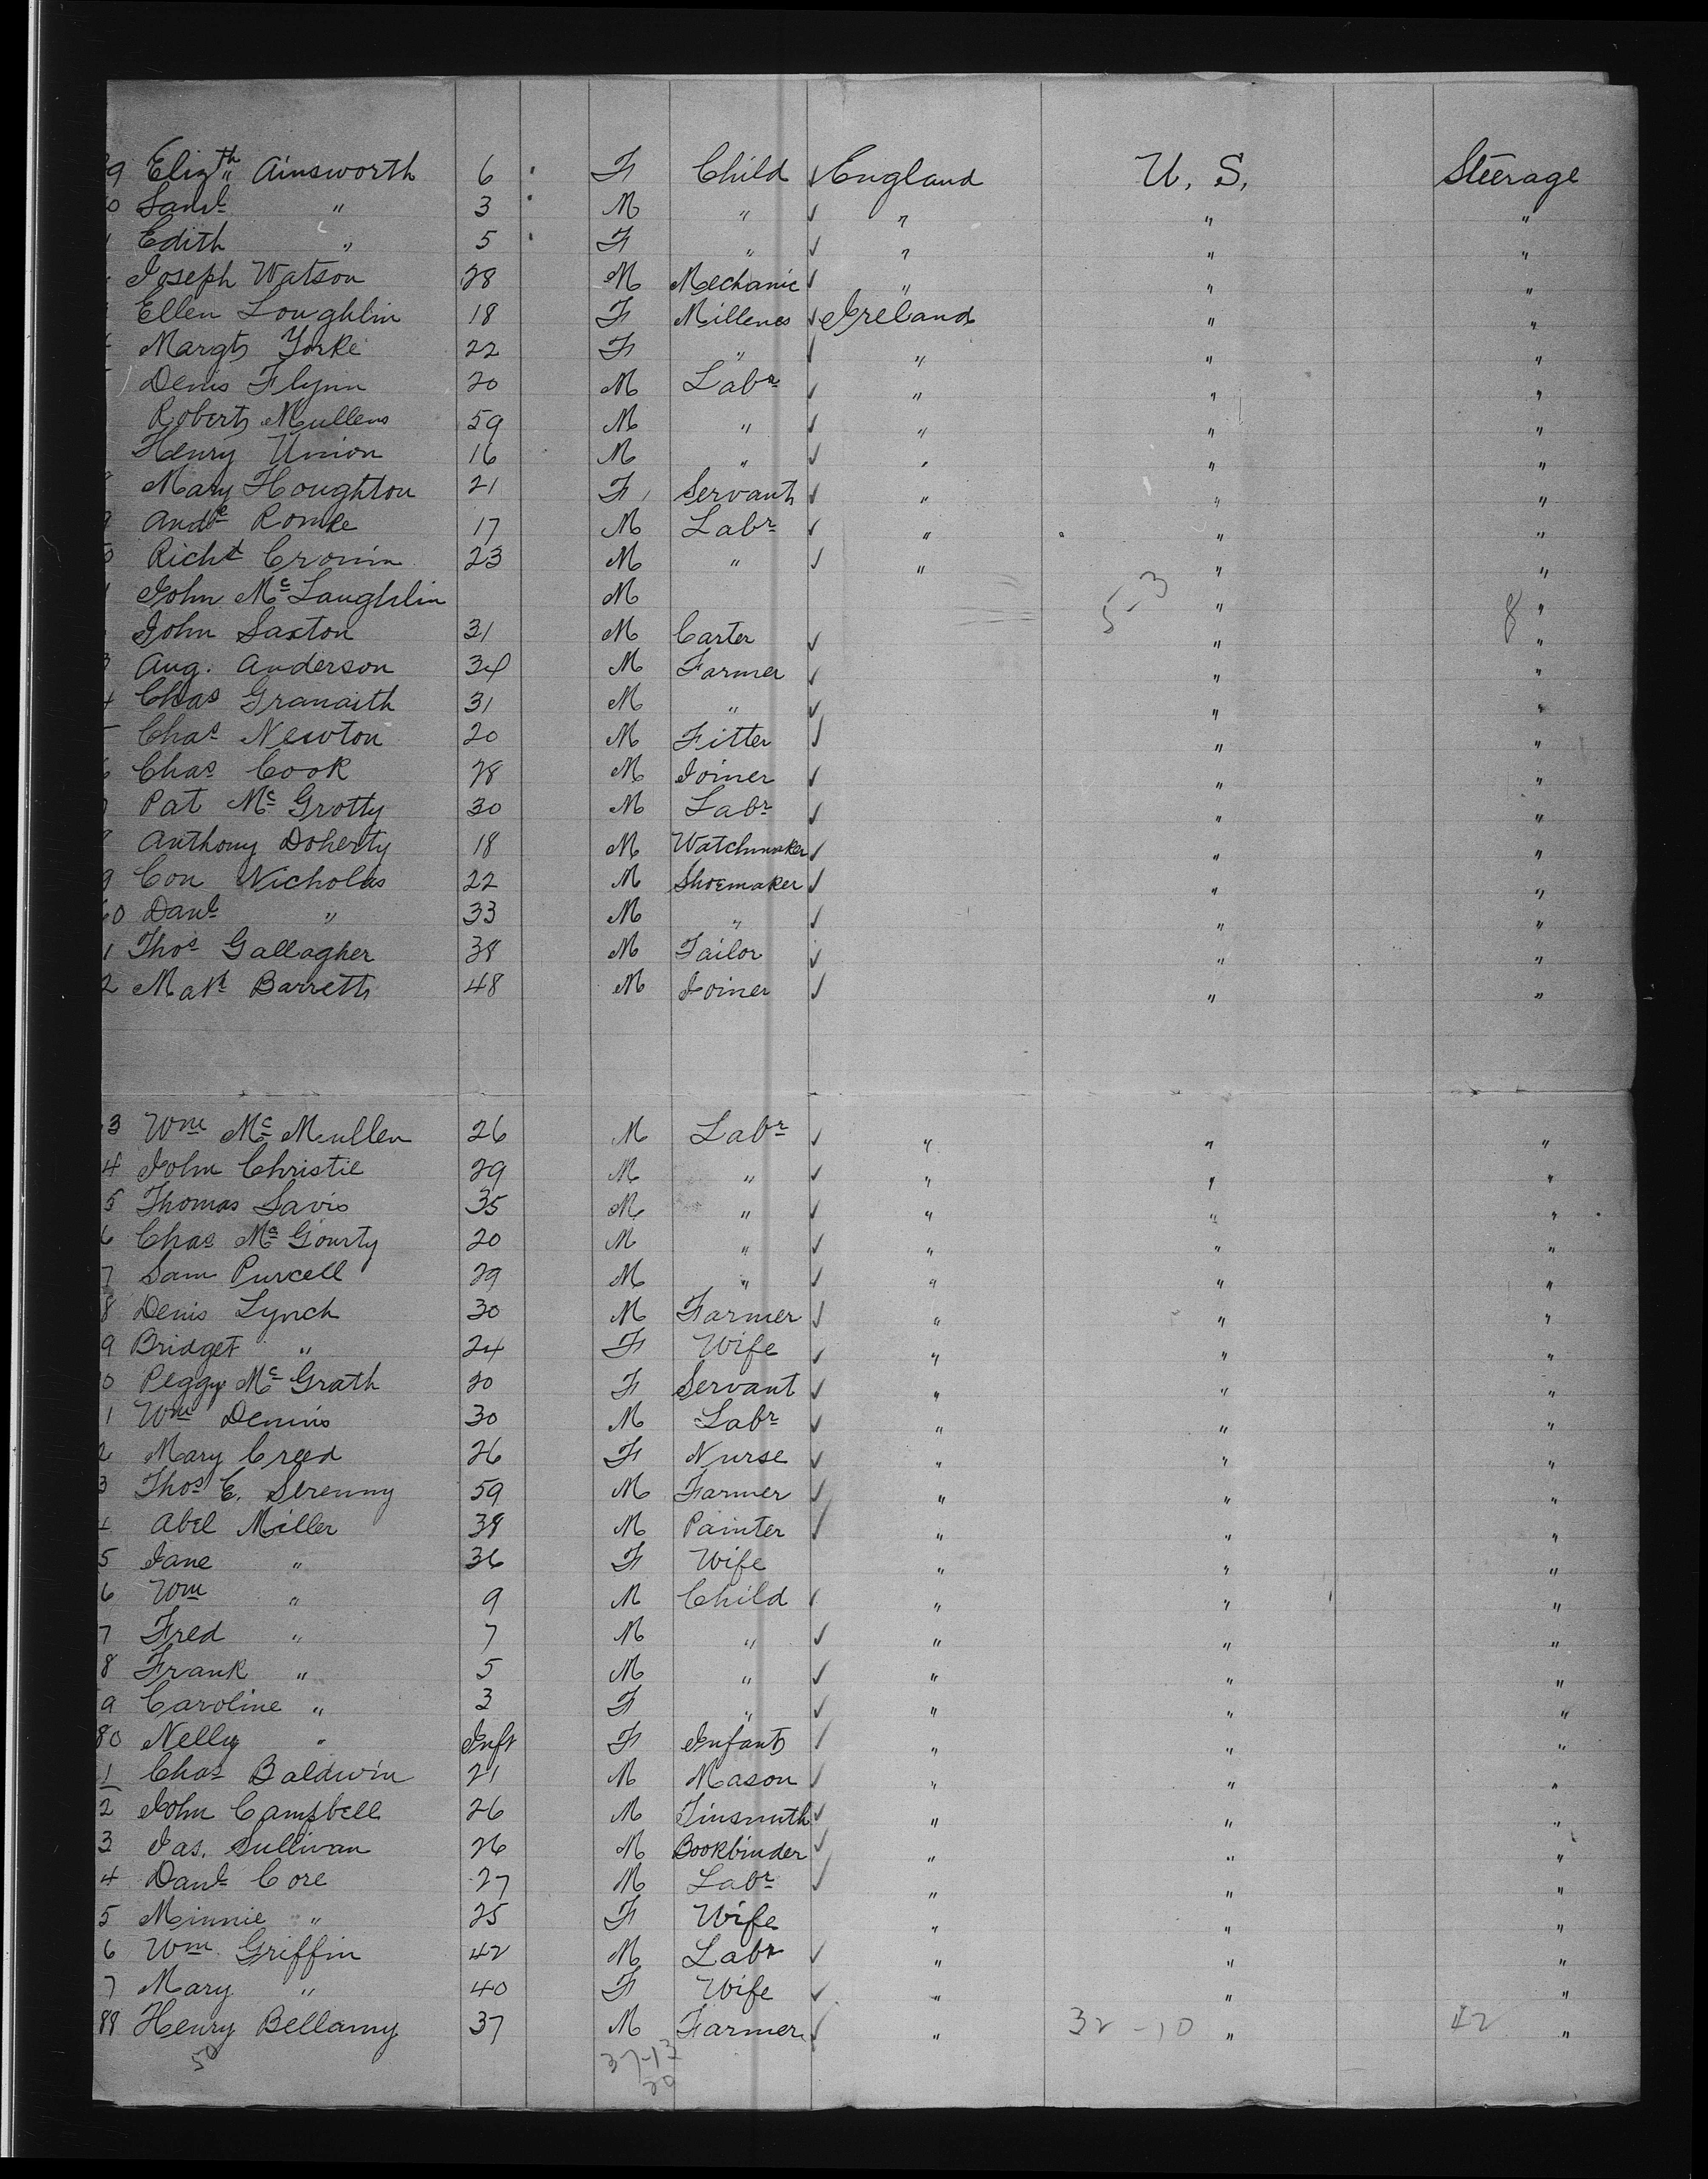 9 Elizth Ainsworth 6 F Child ✓ England U. S. Steerage
0 Saml " 3 M " ✓ " " "
1 Edith " 5 F " ✓ " " "
Joseph Watson 28 M Mechanic ✓ " " "
Ellen Loughlin 18 F Millenes ✓ Ireland " "
Margt Yorke 22 F " ✓ " " "
Denis Flynn 20 M Labr ✓ " " "
Robert Mullens 59 M " ✓ " " "
Henry Union 16 M " ✓ " " "
Mary Houghton 21 F Servant ✓ " " "
Andw Romke 17 M Labr ✓ " " "
Richd Cronin 23 M " ✓ " " "
1 John McLaughlin M 5-3 " 8 "
John Saxton 31 M Carter ✓ " "
3 Aug. Anderson 34 M Farmer ✓ " "
4 Chas Granaith 31 M " ✓ " "
5 Chas Newton 20 M Fitter ✓ " "
6 Chas Cook 28 M Joiner ✓ " "
7 Pat McGrotty 30 M Labr ✓ " "
8 Anthony Doherty 18 M Watchmaker ✓ " "
9 Con Nicholas 22 M Shoemaker ✓ " "
60 Danl " 33 M " ✓ " "
1 Thos Gallagher 38 M Tailor ✓ " "
2 Matt Barrett 48 M Joiner ✓ " "
3 Wm McMullen 26 M Labr ✓ " " "
4 John Christie 29 M " ✓ " " "
5 Thomas Savis 35 M " ✓ " " "
6 Chas McGourty 20 M " ✓ " " "
7 Sam Purcell 29 M " ✓ " " "
8 Denis Lynch 30 M Farmer ✓ " " "
9 Bridget " 24 F Wife ✓ " " "
0 Peggy McGrath 20 F Servant ✓ " " "
1 Wm Dennis 30 M Labr ✓ " " "
2 Mary Creed 26 F Nurse ✓ " " "
3 Thos E. Serenny 59 M Farmer ✓ " " "
4 Abel Miller 38 M Painter ✓ " " "
5 Jane " 36 F Wife " " "
6 Wm " 9 M Child ✓ " " "
7 Fred " 7 M " ✓ " " "
8 Frank " 5 M " ✓ " " "
9 Caroline " 3 F " ✓ " " "
80 Nelly " Inft F Infant ✓ " " "
1 Chas Baldwin 21 M Mason ✓ " " "
2 John Campbell 26 M Tinsmith ✓ " " "
3 Jas. Sullivan 26 M Bookbinder ✓ " " "
4 Danl Core 27 M Labr ✓ " " "
5 Minnie " 25 F Wife " " "
6 Wm Griffin 42 M Labr ✓ " " "
7 Mary " 40 F Wife ✓ " " "
88 Henry Bellamy 37 M Farmer ✓ " 32-10 " 42 "
50 37-13